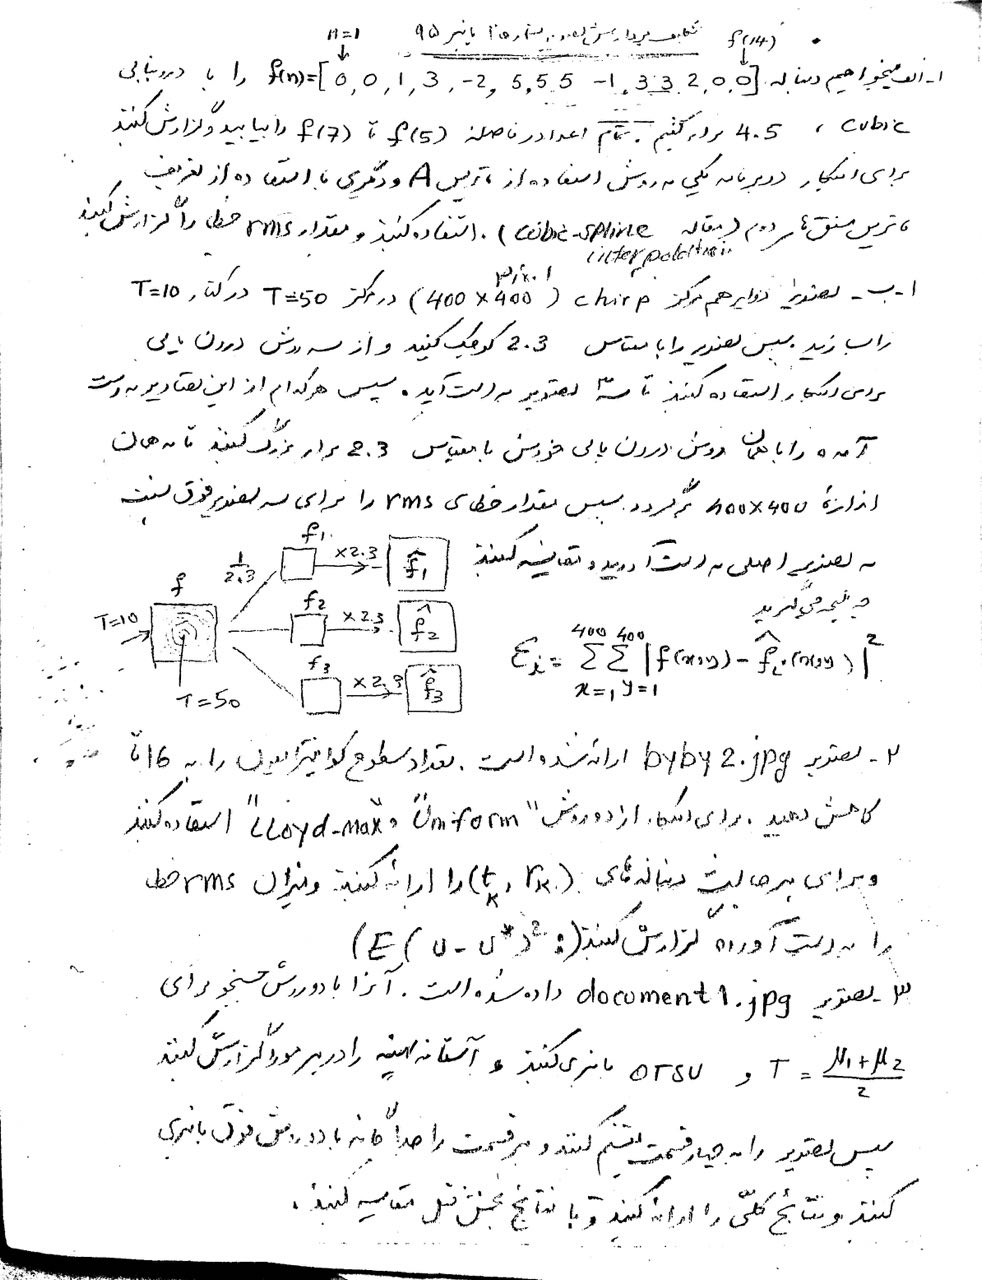 تکلیف پردازش تصویر شماره ۱ پائیز ۹۵
n=1 f(14)
۱- الف میخواهیم دنباله f(n)=[0,0,1,3,-2,5,5,5 -1,3 3 2,0,0] را با درونیابی
cubic ، 4.5 برابر کنیم. تمام اعداد در فاصله f(5) تا f(7) را بیابید و گزارش کنید
برای اینکار دو برنامه یکی به روش استفاده از ماتریس A و دیگری با استفاده از تعریف
ماتریس مشتق‌های دوم (مقاله cubic-spline interpolation). استفاده کنید و مقدار rms خطا را گزارش کنید
۱-ب- تصویر دوایر هم مرکز chirp (400×400) در مرکز T=50 در کنار T=10
را بسازید. سپس تصویر را با مقیاس 2.3 کوچک کنید و از سه روش درون یابی
برای اینکار استفاده کنید تا سه تصویر به دست آید. سپس هر کدام از این تصاویر به دست
آمده را با همان روش درون یابی خودش با مقیاس 2.3 برابر بزرگ کنید تا به همان
اندازهٔ 400×400 برگردد. سپس مقدار خطای rms را برای سه تصویر فوق نسبت
به تصویر اصلی به دست آورید و مقایسه کنید
چه نتیجه می‌گیرید
f 1/2.3 f1 ×2.3 f̂1
T=10 f2 ×2.3 f̂2
T=50 f3 ×2.3 f̂3
εi = Σ(x=1, 400) Σ(y=1, 400) |f(x,y) - f̂i(x,y)|²
۲- تصویر byby2.jpg ارائه شده است. تعداد سطوح کوانتیزاسیون را به 16 تا
کاهش دهید. برای اینکار از دو روش "Uniform" و "Lloyd-Max" استفاده کنید
و برای هر حالت دنباله‌های (tk, rk) را ارائه کنید و میزان rms خطا
را به دست آورده گزارش کنید (E(u-u*)²:)
۳- تصویر document1.jpg داده شده است. آنرا با دو روش جستجو برای
T = (μ1+μ2)/2 و OTSU باینری کنید و آستانه بهینه را در هر مورد گزارش کنید
سپس تصویر را به چهار قسمت تقسیم کنید و هر قسمت را جداگانه با دو روش فوق باینری
کنید و نتایج کلی را ارائه کنید و با نتایج بخش قبل مقایسه کنید.